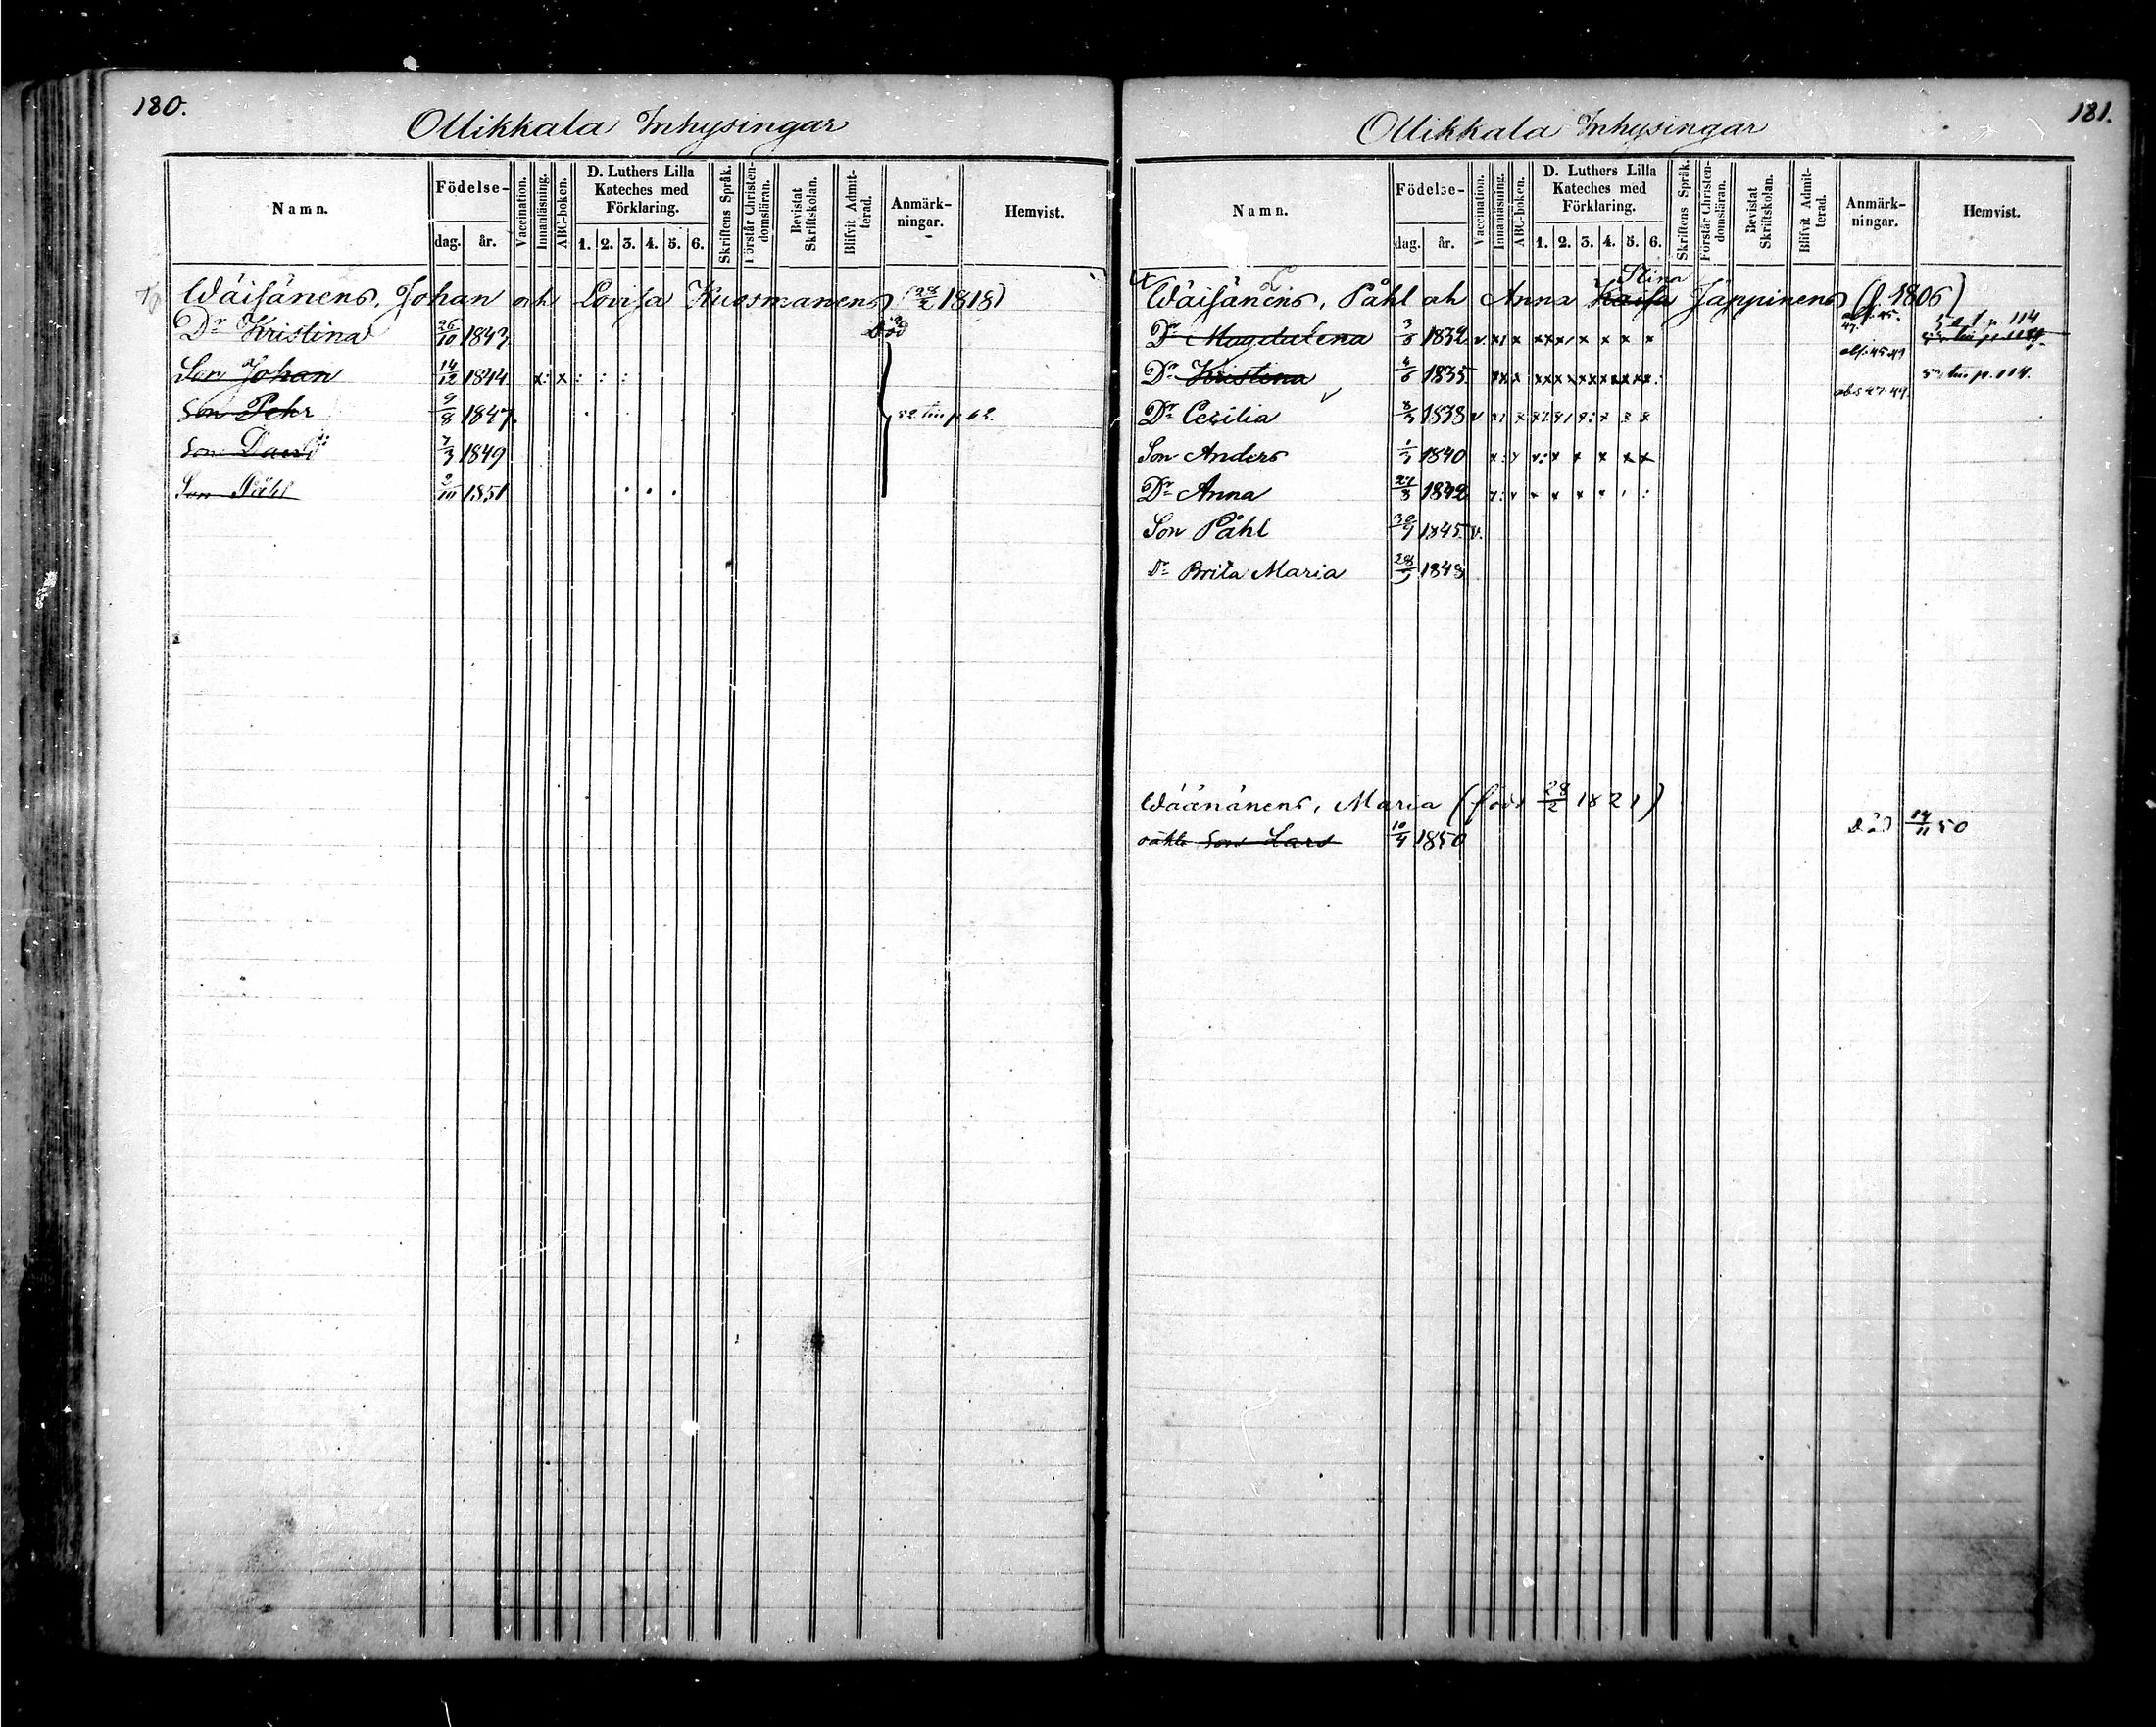 180.
Ollikkala Inhysingar
Namn. Födelse- dag. år. Vaccination. Innanläsning. ABC-boken. D. Luthers Lilla Kateches med Förklaring. 1. 2. 3. 4. 5. 6. Skriftens Språk. Förstår Christendomsläran. Bevistat Skriftskolan. Blifvit Admitterad. Anmärkningar. Hemvist.
Wäisänens, Johan och Lovisa Kuosmanens (28/2 1818)
Dr Kristina 26/10 1843 död
Son Johan 14/12 1844 x: x : : :
Son Pehr 9/8 1847. 52 p 62.
Son David 7/3 1849
Son Påhl 9/10 1851
181.
Ollikkala Inhysingar
Namn. Födelse- dag. år. Vaccination. Innanläsning. ABC-boken. D. Luthers Lilla Kateches med Förklaring. 1. 2. 3. 4. 5. 6. Skriftens Språk. Förstår Christendomsläran. Bevistat Skriftskolan. Blifvit Admitterad. Anmärkningar. Hemvist.
Stina
Wäisänens, Påhl och Anna Kaisa Jäppinens (f. 1806)
Dr Magdalena 3/5 1832 p. 114
Dr Kristina 4/6 1835 p. 114.
Dr Cecilia 8/3 1838
Son Anders 1/3 1840
Dr Anna 27/3 1842
Son Påhl 30/4 1845 v.
Dr Brita Maria 28/5 1848
Wäänänens, Maria (född 28/2 1821)
oäkta Son Lars 10/4 1850 död 14/11 50